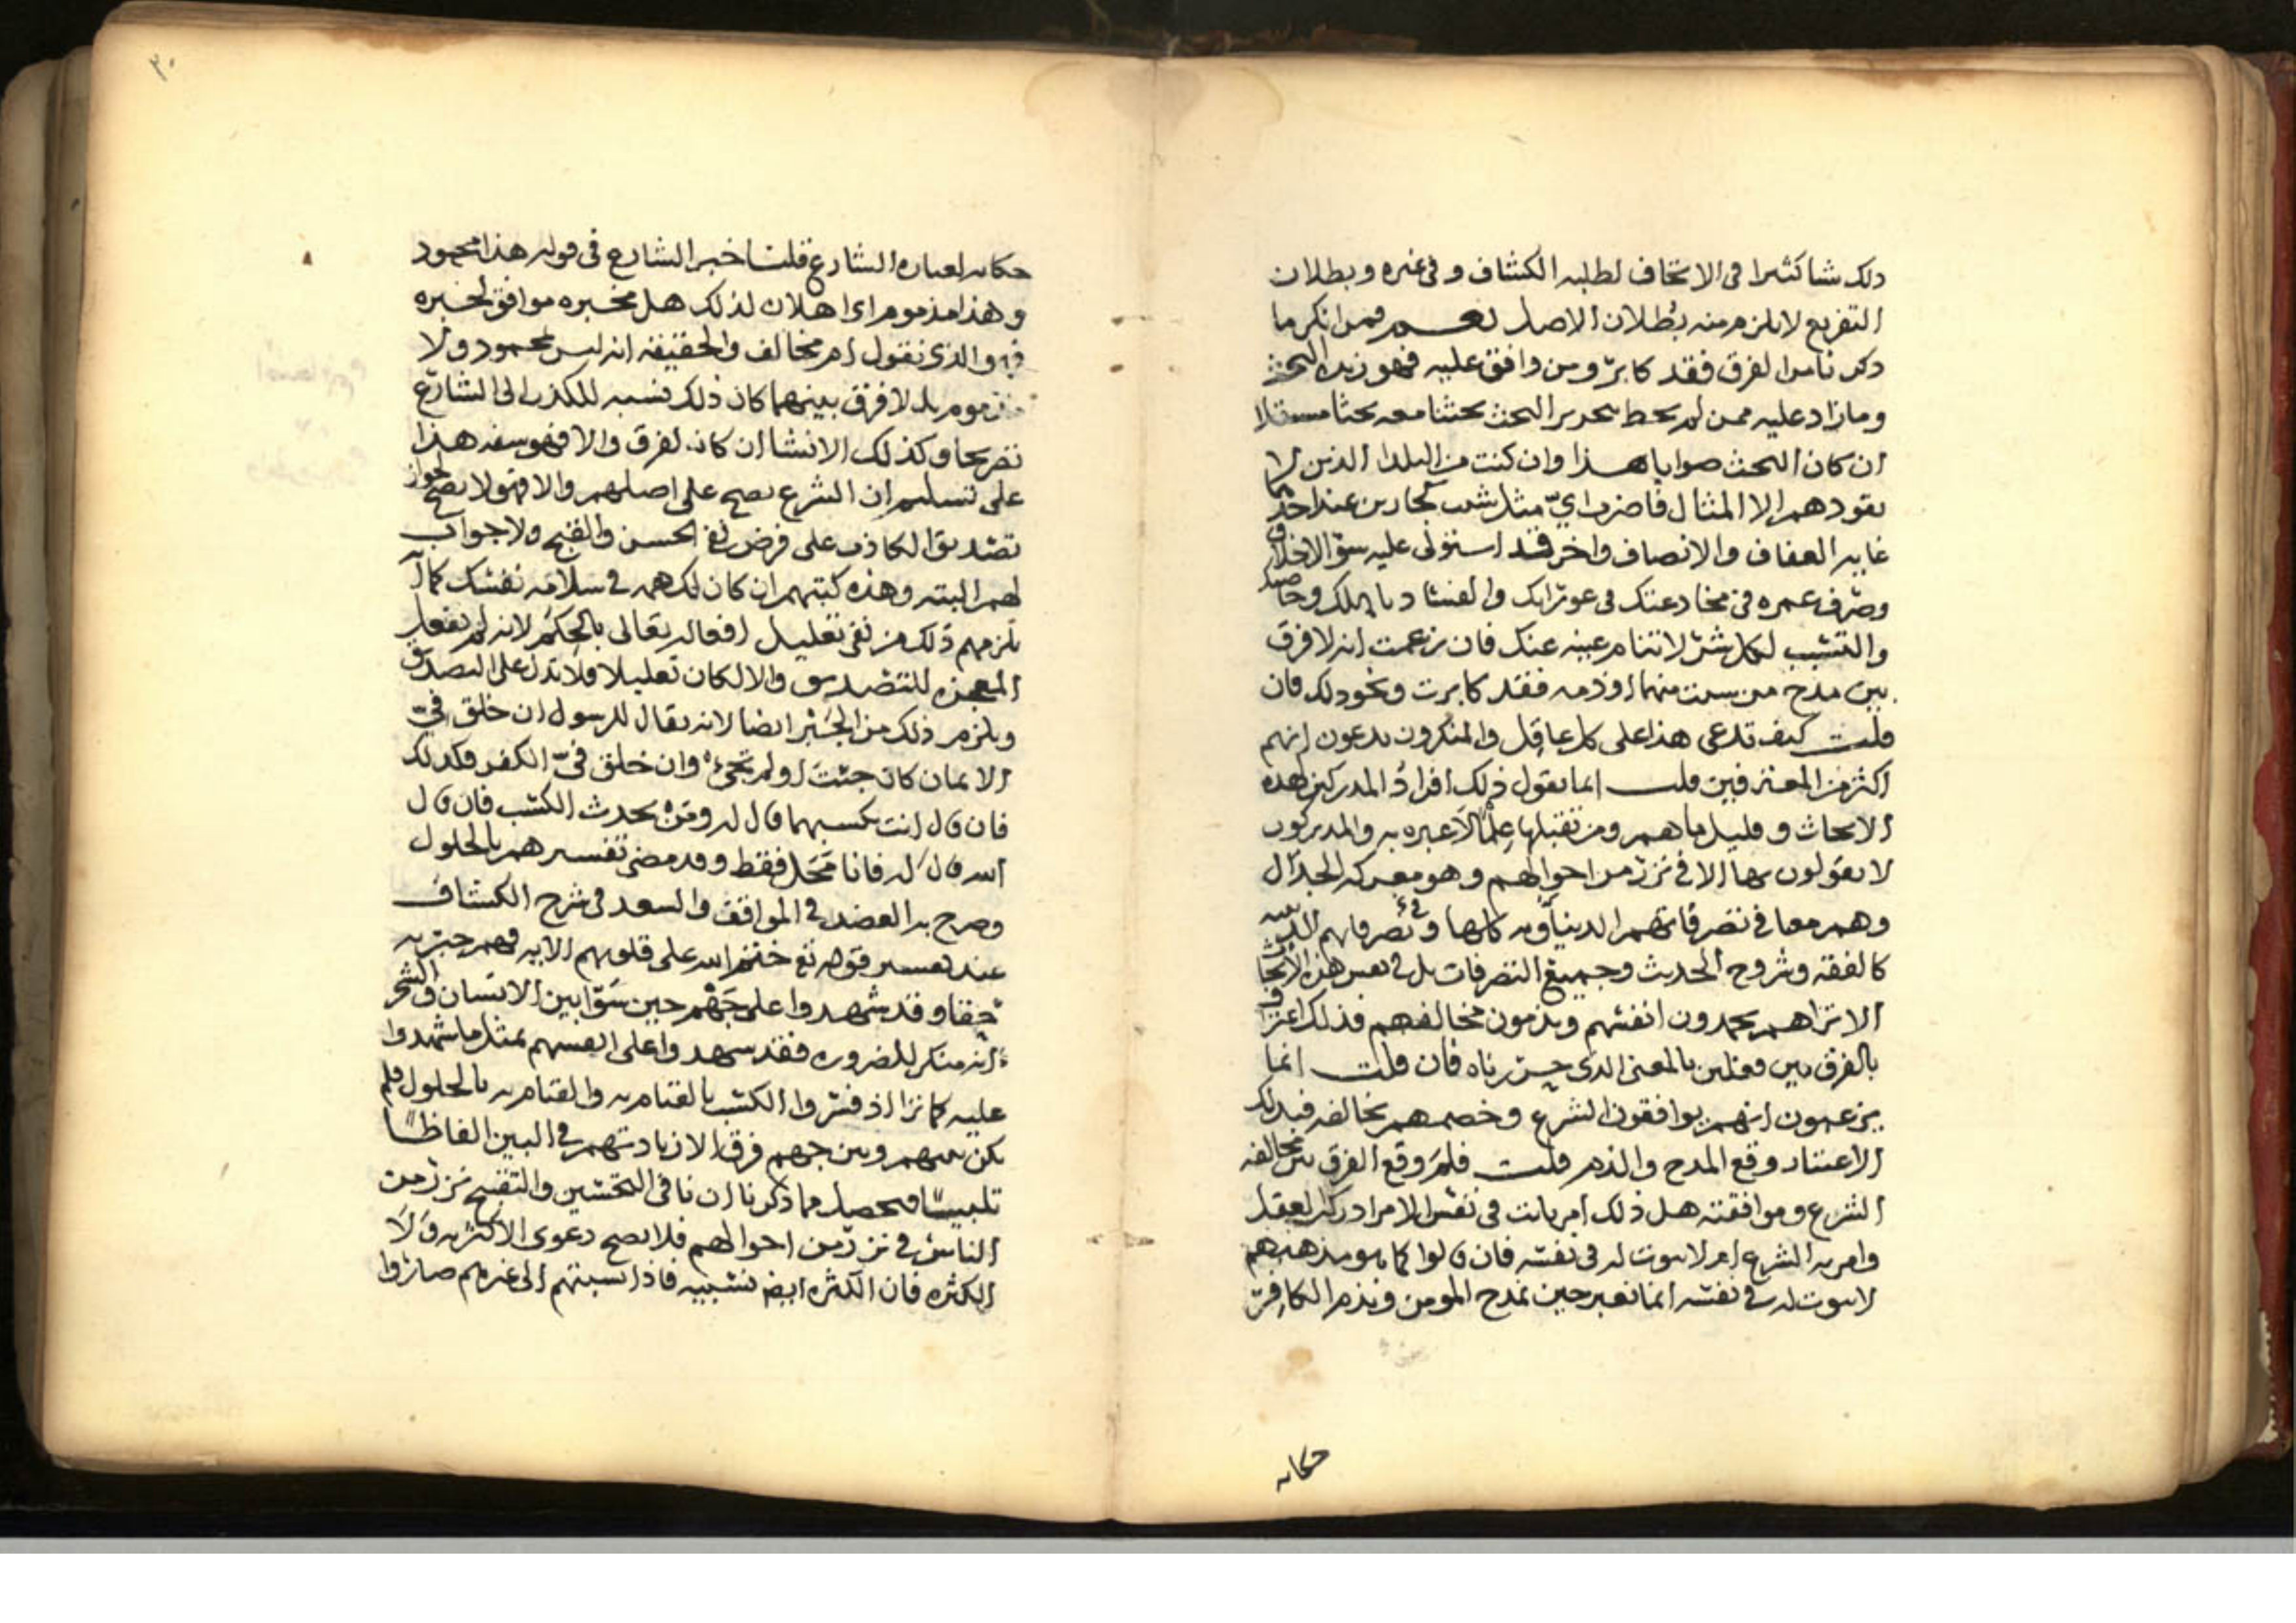 ذلك شيا كثيرا في الاتحاف لطلبه الكشاف وفي غيره وبطلان
التفريع لا يلزم منه بطلان الاصل نعم فمن انكر ما
ذكرنا من الفرق فقد كابر ومن وافق عليه فهو زبدة البحث
وما زاد عليه ممن لم يحط بتحرير البحث بحثنا معه بحثا مستقلا
ان كان البحث صوابا هذا وان كنت من البلدا الذين لا
يقودهم الا المثال فاضرب اي مثل شيت كجارين عند احدهما
غاية العفاف والانصاف واخر قد استولى عليه سو الاخلاق
وصرف عمره في مخادعتك في عوراتك والفساد باهلك وخاصتك
والتسبب لكل شر لا تنام عينه عنك فان زعمت انه لا فرق
بين مدح من سميت منهما او ذمه فقد كابرت ونحو ذلك فان
قلت كيف تدعي هذا على كل عاقل والمنكرون يدعون انهم
اكثر من المعترفين قلت انما يقول ذلك افراد المدركين لهذه
الابحاث وقليل ما هم ومن تقبلها علما لا عبره به والمدركون
لا يقولون بها الا في نزر من احوالهم وهو معركه الجدال
وهم معنا في تصرفاتهم الدنياويه كلها وفي تصرفاتهم الدينيه
كالفقه وشروح الحديث وجميع التصرفات بل في نفس هذه الابحاث
الا تراهم يحمدون انفسهم ويذمون مخالفهم فذلك اعتراف
بالفرق بين فعلين بالمعنى الذي حررناه فان قلت انما
يزعمون انهم يوافقون الشرع وخصمهم يخالفه فبذلك
الاعتبار وقع المدح والذم قلت فلم وقع الفرق بين مخالفه
الشرع وموافقته هل ذلك امر ثابت في نفس الامر ادركه العقل
وامر به الشرع ام لا ثبوت له في نفسه فان قالوا كما هو مذهبهم
لا ثبوت له في نفسه انما نعبر حين نمدح المومن ونذم الكافر
حكايه
٣٠
حكايه لعباره الشارع قلنا خبر الشارع في قوله هذا محمود
وهذا مذموم اي اهلان لذلك هل مخبره موافق لخبره
فهو الذي نقول ام مخالف والحقيقه انه ليس بمحمود ولا
مذموم بل لا فرق بينهما كان ذلك نسبه للكذب الى الشارع
تصريحا وكذلك الانشا ان كان لفرق والا فهو سفه هذا
على تسليم ان الشرع يصح على اصلهم والا فهو لا يصح لجواز
تصديق الكاذب على فرض نفي الحسن والقبح ولا جواب
لهم البته وهذه كتبهم ان كان لك همه في سلامه نفسك كما
يلزمهم ذلك من نفي تعليل افعاله تعالى بالحكم لانه لم يفعل
المعجزه للتصديق والا لكان تعليلا فلا تدل على التصديق
ويلزم ذلك من الجبر ايضا لانه يقال للرسول ان خلق في
الايمان كان جئت او لم تجئ وان خلق في الكفر فكذلك
فان قال انت تكسبهما قال له ومن يحدث الكسب فان قال
الله قال له فانا محل فقط وقد مضى تفسيرهم بالحلول
وصرح به العضد في المواقف والسعد في شرح الكشاف
عند تفسير قوله تع ختم الله على قلوبهم الايه فهم جبريه
حقا وقد شهدوا على جهم حين سوا بين الانسان والشجر
انه منكر للضروره فقد شهدوا على انفسهم بمثل ما شهدوا
عليه كما ترا اذ فسروا الكسب بالقيام به والقيام به بالحلول فلم
يكن بينهم وبين جهم فرق الا زيادتهم في البين الفاظا
تلبيسا فحصل مما ذكرنا ان نافي التحسين والتقبيح نزر من
الناس في نزر من احوالهم فلا يصح دعوى الاكثريه ولا
الكثره فان الكثره ايضا نسبيه فاذا نسبتهم الى غيرهم صاروا